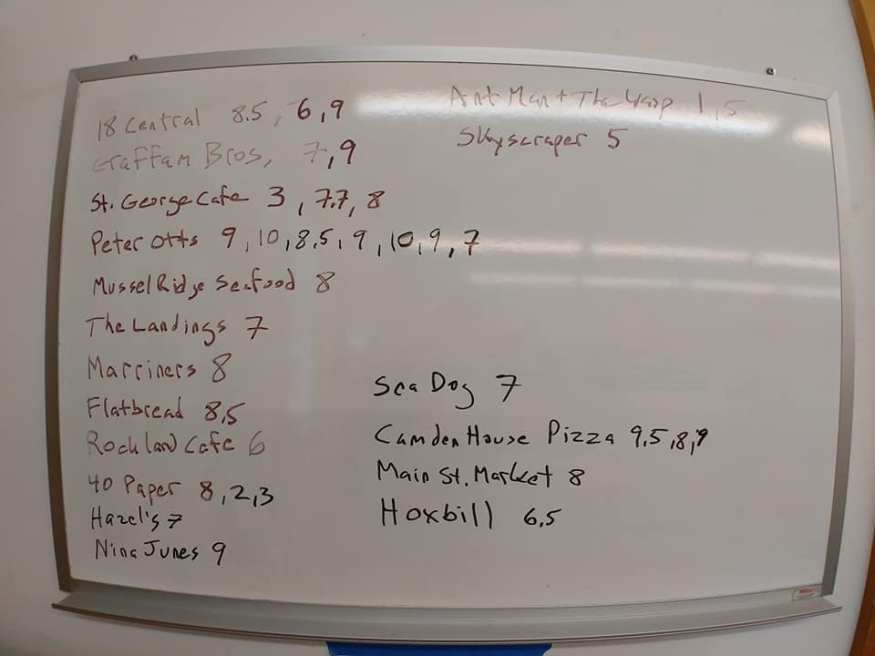 18 Central 8.5, 6, 9
Graffam Bros, 7, 9
St. George Cafe 3, 7.7, 8
Peter Otts 9, 10, 8.5, 9, 10, 9, 7
Mussel Ridge Seafood 8
The Landings 7
Marriners 8
Flatbread 8.5
Rockland Cafe 6
40 Paper 8, 2, 3
Hazel's 7
Nina Junes 9
Ant Man + The Wasp 1, 5
Skyscraper 5
Sea Dog 7
Camden House Pizza 9.5, 8, 9
Main St. Market 8
Hoxbill 6.5